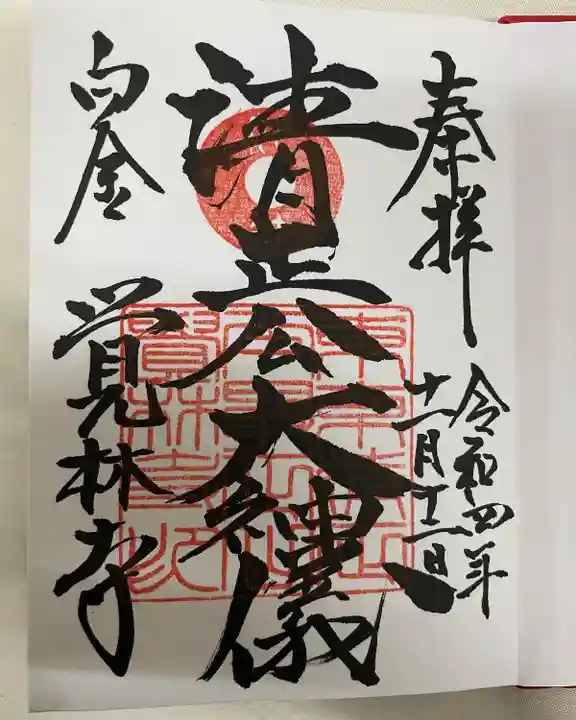 奉拝
令和四年
十一月十二日
清正公大神儀
白金
覚林寺